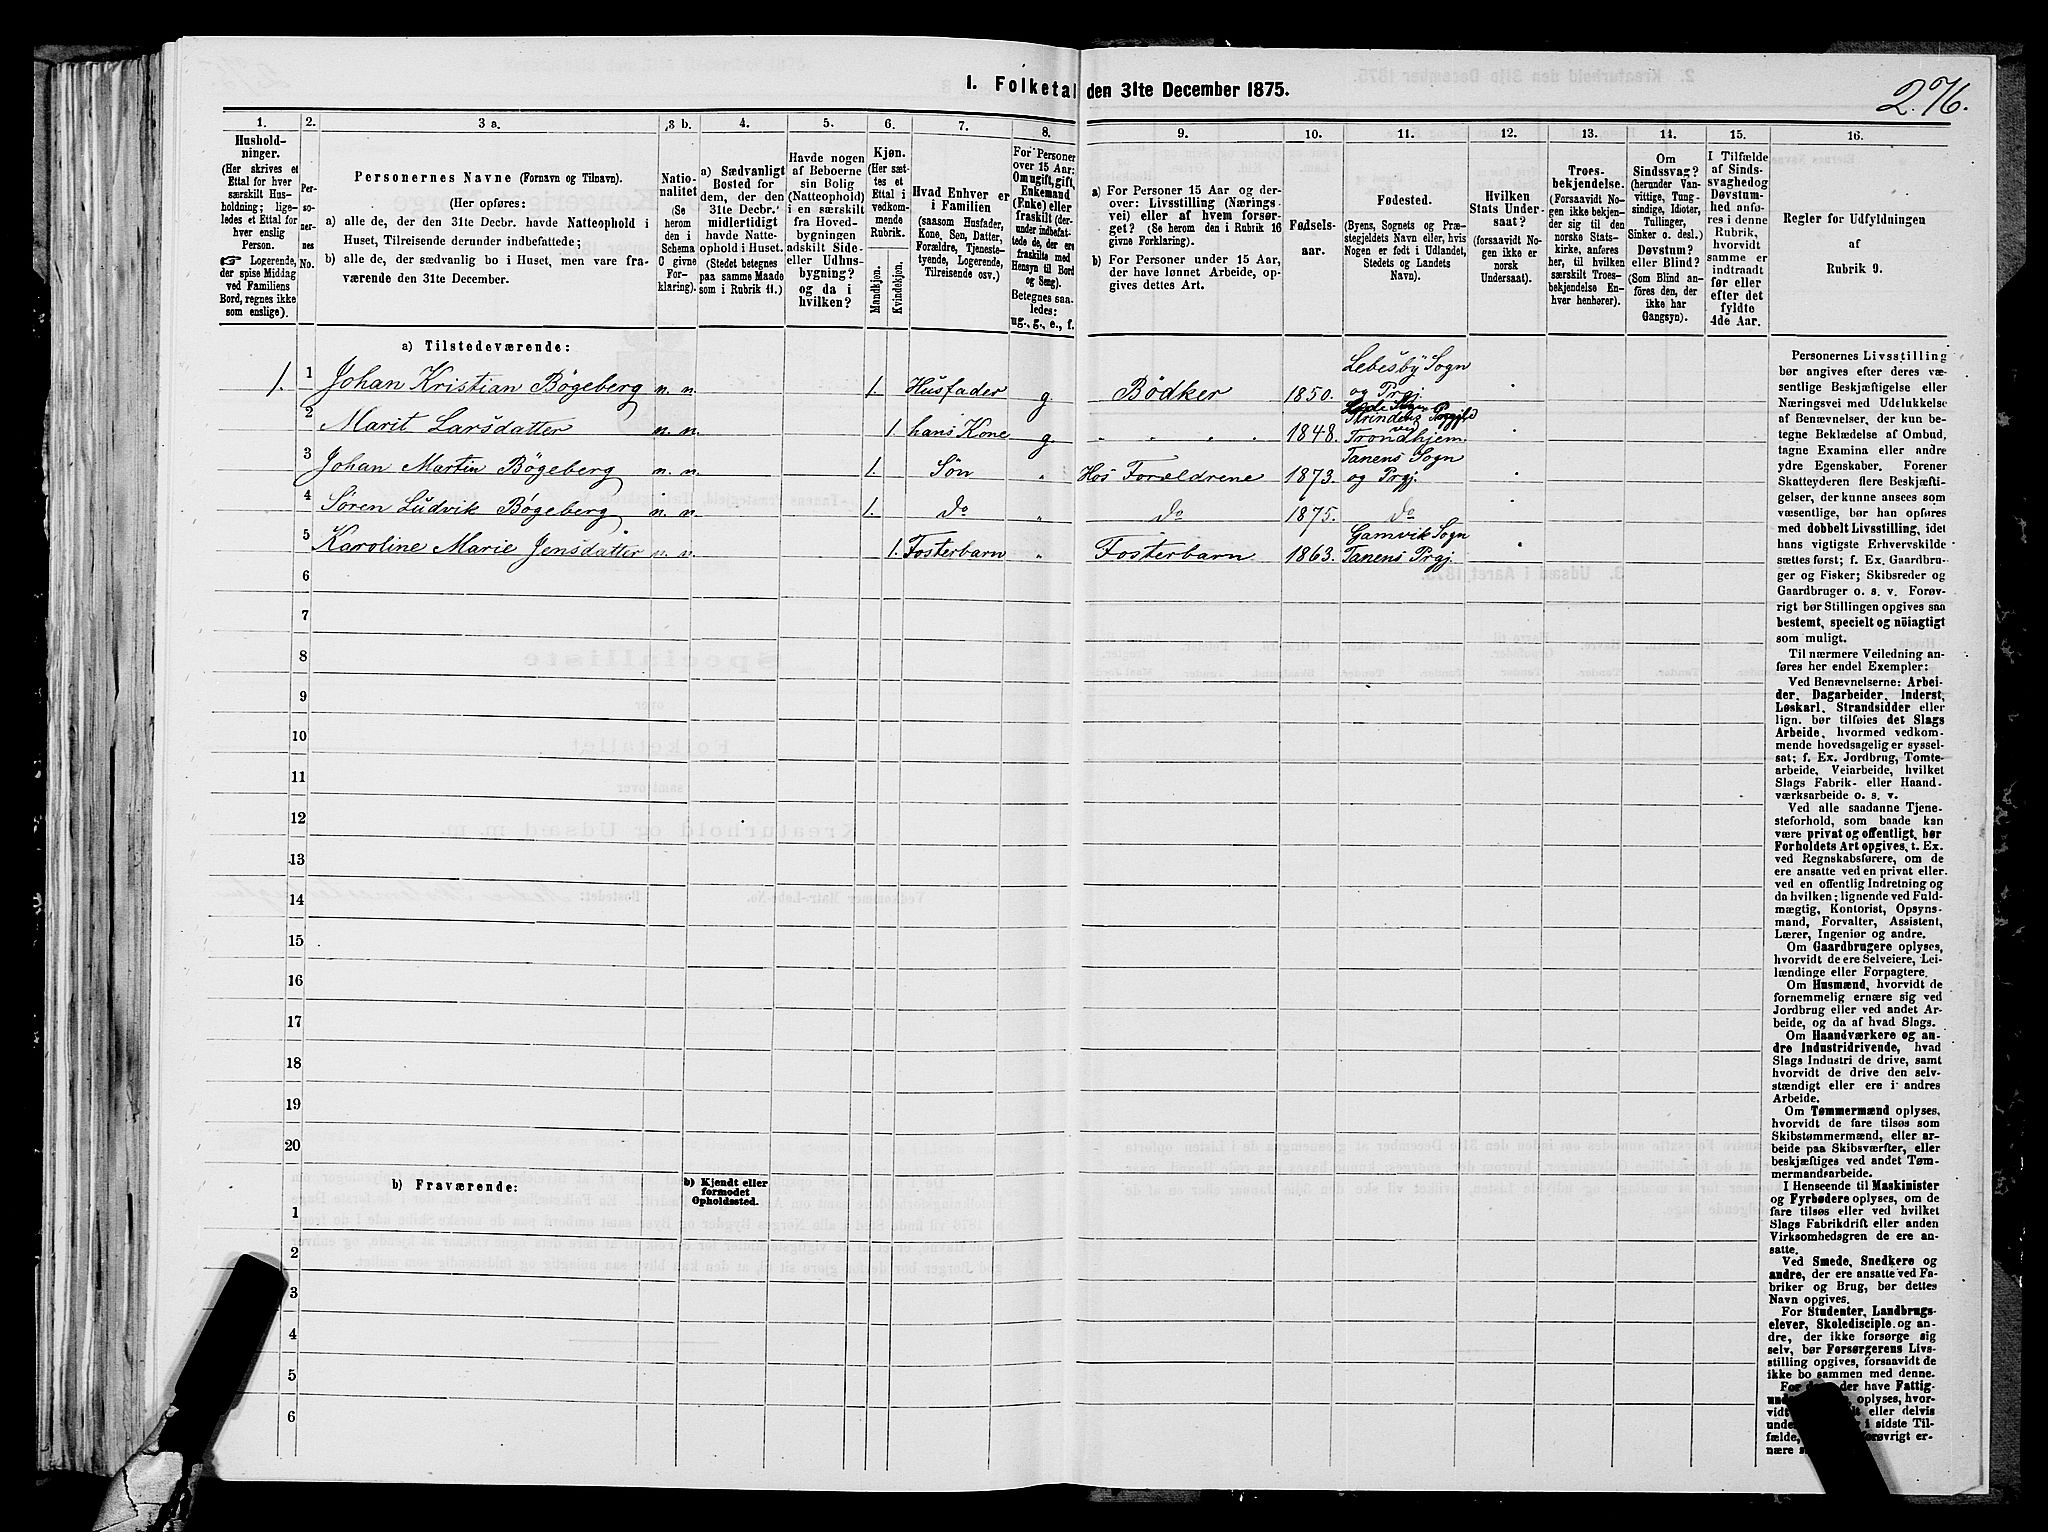 I. Folketal den 31te December 1875.
276.
1.
2.
3 a.
3 b.
4.
5.
6.
7.
8.
9.
10.
11.
12.
13.
14.
15.
16.
Hushold-
ninger.
(Her skrives et
Ettal for hver
særskilt Hus-
holdning; lige-
ledes et Ettal for
hver enslig
Person.
☞ Logerende,
der spise Middag
ved Familiens
Bord, regnes ikke
som enslige).
Per-
so-
ner-
nes
No.
Personernes Navne (Fornavn og Tilnavn).
(Her opføres:
a) alle de, der den 31te Decbr. havde Natteophold i
Huset, Tilreisende derunder indbefattede;
b) alle de, der sædvanlig bo i Huset, men vare fra-
værende den 31te December.
Natio-
nalitet
(Se
herom
den i
Schema
C givne
For-
klaring).
a) Sædvanligt
Bosted for
dem, der den
31te Decbr.
midlertidigt
havde Natte-
ophold i Huset.
(Stedet betegnes
paa samme Maade
som i Rubrik 11.)
Havde nogen
af Beboerne
sin Bolig
(Natteophold)
i en særskilt
fra Hoved-
bygningen
adskilt Side-
eller Udhus-
bygning?
og da i
hvilken?
Kjøn.
(Her sæt-
tes et
Ettal i
vedkom-
mende
Rubrik.
Mandkjøn.
Kvindekjøn.
Hvad Enhver er
i Familien
(saasom Husfader,
Kone, Søn, Datter,
Forældre, Tjeneste-
tyende, Logerende,
Tilreisende osv.)
For Personer
over 15 Aar:
Om ugift, gift,
Enkemand
(Enke) eller
fraskilt (der-
under indbefat-
tede de, der ere
fraskilte med
Hensyn til Bord
og Seng).
Betegnes saa-
ledes:
ug., g., e., f.
a) For Personer 15 Aar og der-
over: Livsstilling (Nærings-
vei) eller af hvem forsør-
get? (Se herom den i Rubrik 16
givne Forklaring).
b) For Personer under 15 Aar,
der have lønnet Arbeide, op-
gives dettes Art.
Fødsels-
aar.
Fødested.
(Byens, Sognets og Præ-
stegjeldets Navn eller, hvis
Nogen er født i Udlandet,
Stedets og Landets
Navn).
Hvilken
Stats Under-
saat?
(forsaavidt No-
gen ikke er
norsk
Undersaat).
Troes-
bekjendelse.
(Forsaavidt No-
gen ikke bekjen-
der sig til den
norske Stats-
kirke, anføres
her, til hvilken
særskilt Troes-
bekjendelse En-
hver henhører).
Om
Sindssvag?
(herunder Van-
vittige, Tung-
sindige, Idioter,
Tullinger,
Sinker o. desl.)
Døvstum?
eller Blind?
(Som Blind an-
føres den, der
ikke har
Gangsyn).
I Tilfælde
af Sinds-
svaghed og
Døvstum-
hed anfø-
res i denne
Rubrik,
hvorvidt
samme er
indtraadt
før eller
efter det
fyldte
4de Aar.
Regler for Udfyldningen
af
Rubrik 9.
a) Tilstedeværende:
1. 1 Johan Kristian Bøgeberg n. n. 1. Husfader g. Bödker 1850. Lebesby Sogn og Prgj.
2 Marit Larsdatter n. n. 1. hans Kone g. " " " " 1848. Lade Sogn Strindens Prgjld ved Trondhjem.
3 Johan Martin Bøgeberg n. n. 1. Søn " Hos Forældrene 1873. Tanens Sogn og Prgj.
4 Søren Ludvik Bøgeberg n. n. 1. do " do 1875. do
5 Karoline Marie Jensdatter n. n. 1. Fosterbarn " Fosterbarn 1863. Gamvik Sogn Tanens Prgj.
6
7
8
9
10
11
12
13
14
15
16
17
18
19
20
b) Fraværende:
b) Kjendt eller
formodet
Opholdssted.
1
2
3
4
5
6
Personernes Livsstilling
bør angives efter deres væ-
sentlige Beskjæftigelse eller
Næringsvei med Udelukkelse
af Benævnelser, der kun be-
tegne Beklædelse af Ombud,
tagne Examina eller andre
ydre Egenskaber. Forener
Skatteyderen flere Beskjæfti-
gelser, der kunne ansees som
væsentlige, bør han opføres
med dobbelt Livsstilling, idet
hans vigtigste Erhvervskilde
sættes først; f. Ex. Gaardbru-
ger og Fisker; Skibsreder og
Gaardbruger o. s. v. Forøv-
rigt bør Stillingen opgives saa
bestemt, specielt og nöiagtigt
som muligt.
Til nærmere Veiledning an-
føres her endel Exempler:
Ved Benævnelserne: Arbei-
der, Dagarbeider, Inderst,
Løskarl, Strandsidder eller
lign. bør tilføies det Slags
Arbeide, hvormed vedkom-
mende hovedsagelig er syssel-
sat; f. Ex. Jordbrug, Tomte-
arbeide, Veiarbeide, hvilket
Slags Fabrik- eller Haand-
værksarbeide o. s. v.
Ved alle saadanne Tjene-
steforhold, som baade kan
være privat og offentligt, bør
Forholdets Art opgives, t. Ex.
ved Regnskabsførere, om de
ere ansatte ved en privat eller
ved en offentlig Indretning og
da hvilken; lignende ved Fuld-
mægtig, Kontorist, Opsyns-
mand, Forvalter, Assistent,
Lærer, Ingeniør og andre.
Om Gaardbrugere oplyses,
hvorvidt de ere Selveiere, Lei-
lændinge eller Forpagtere.
Om Husmænd, hvorvidt de
fornemmelig ernære sig ved
Jordbrug eller ved andet Ar-
beide, og da af hvad Slags.
Om Haandværkere og an-
dre Industridrivende, hvad
Slags Industri de drive, samt
hvorvidt de drive den selv-
stændigt eller ere i andres
Arbeide.
Om Tømmermænd oplyses,
hvorvidt de fare tilsøs som
Skibstømmermænd, eller ar-
beide paa Skibsværfter, eller
beskjæftiges ved andet Tøm-
mermandsarbeide.
I Henseende til Maskinister
og Fyrbødere oplyses, om de
fare tilsøs eller ved hvilket
Slags Fabrikdrift eller anden
Virksomhedsgren de ere an-
satte.
Ved Smede, Snedkere og
andre, der ere ansatte ved Fa-
briker og Brug, bør dettes
Navn opgives.
For Studenter, Landbrugs-
elever, Skoledisciple og an-
dre, der ikke forsørge sig
selv, bør Forsørgerens Livs-
stilling opgives, forsaavidt de
ikke bo sammen med denne.
For der have Fattig-
oplyses, hvor-
vidt eller delvis
under i sidste Til-
fælde, forøvrigt er-
nære